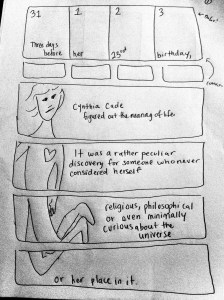 31 1 2 3
Three days before her 23rd birthday,
Cynthia Cade
figured out the meaning of life.
It was a rather peculiar
discovery for someone who never
considered herself
religious, philosophical
or even minimally
curious about the
universe
or her place in it.